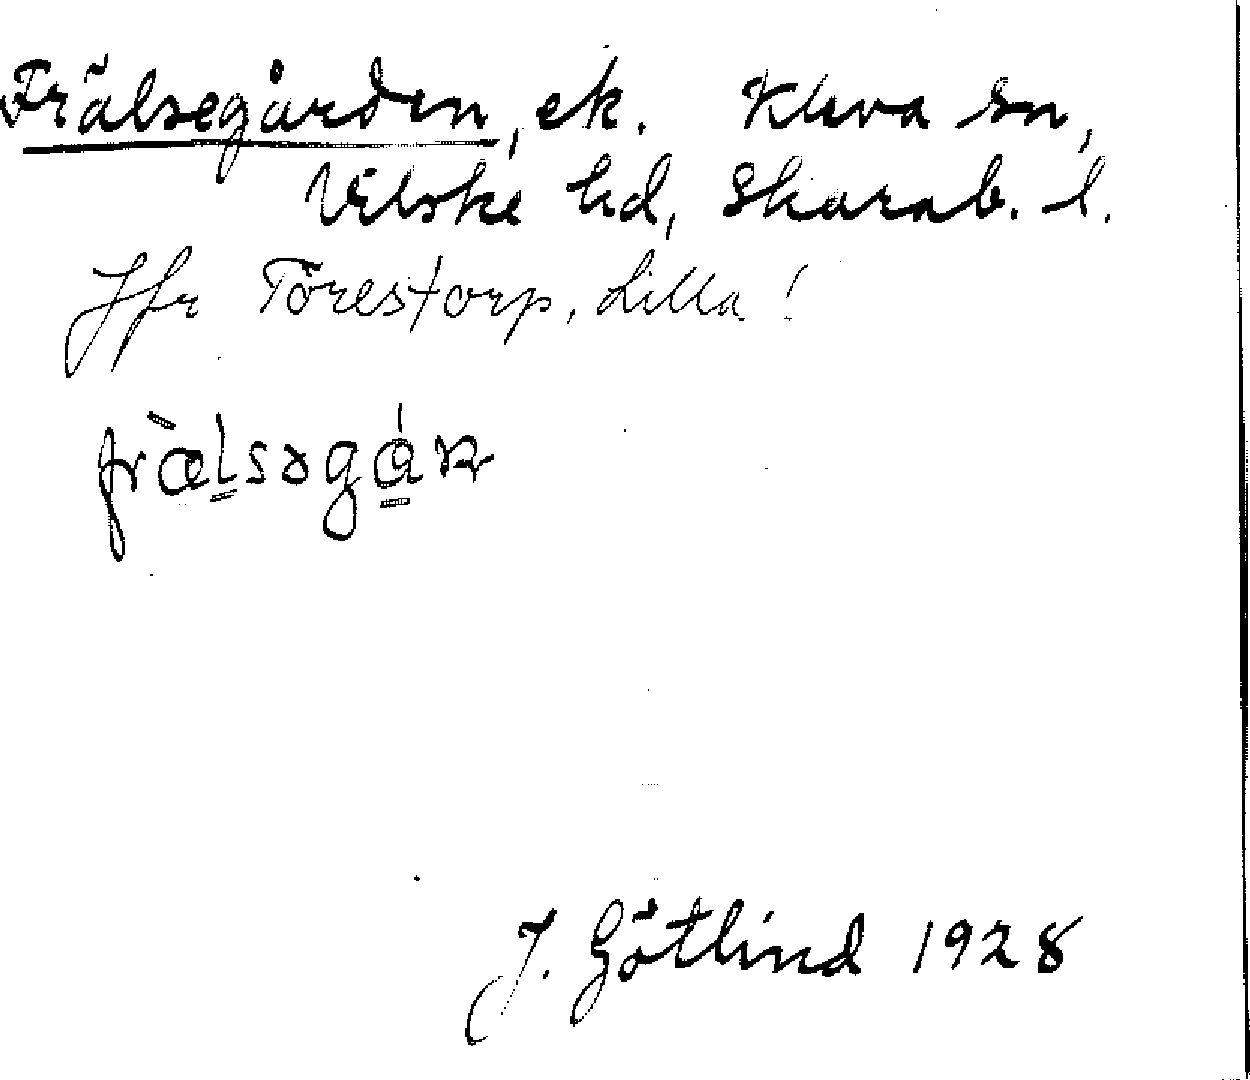 Frälsegården, ek. Kleva sn,
Vilske hd, Skarab. l.
Jfr Torestorp, Lilla!
fræ̀lsəgá̱ɳ
J. Götlind 1928